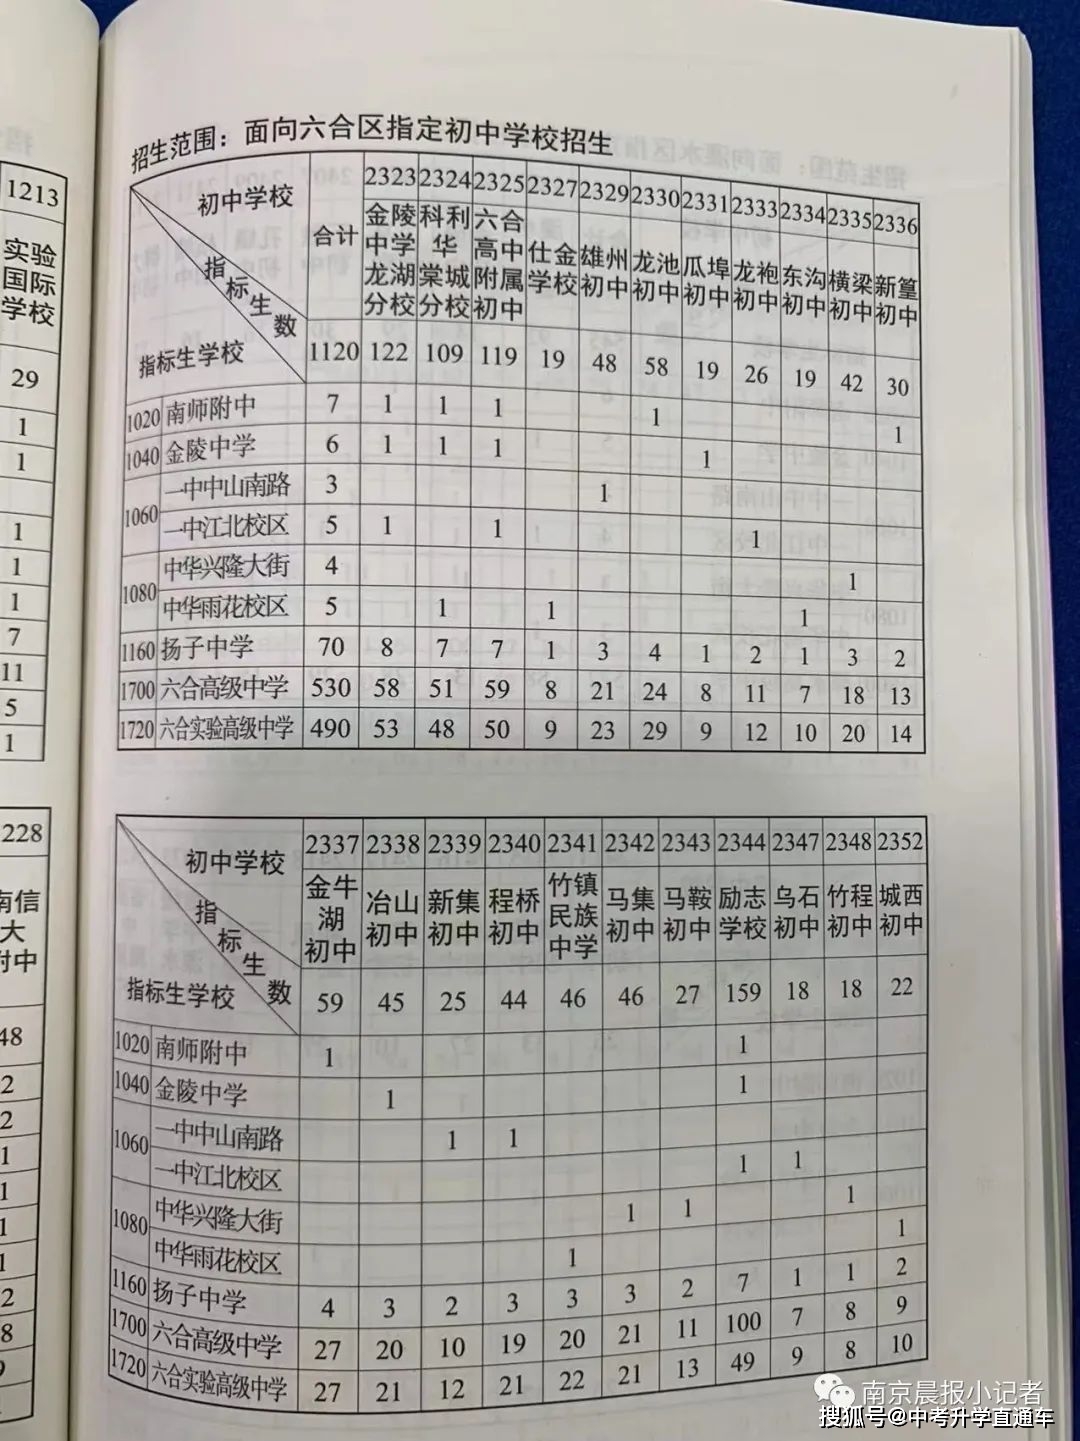 招生范围：面向六合区指定初中学校招生
初中学校 指标生数 指标生学校 合计 2323 2324 2325 2327 2329 2330 2331 2333 2334 2335 2336
金陵中学龙湖分校 科利华棠城分校 六合高中附属初中 仕金学校 雄州初中 龙池初中 瓜埠初中 龙袍初中 东沟初中 横梁初中 新篁初中
1120 122 109 119 19 48 58 19 26 19 42 30
1020 南师附中 7 1 1 1 1 1
1040 金陵中学 6 1 1 1 1
1060 一中中山南路 3 1
一中江北校区 5 1 1 1
1080 中华兴隆大街 4 1
中华雨花校区 5 1 1 1
1160 扬子中学 70 8 7 7 1 3 4 1 2 1 3 2
1700 六合高级中学 530 58 51 59 8 21 24 8 11 7 18 13
1720 六合实验高级中学 490 53 48 50 9 23 29 9 12 10 20 14
初中学校 指标生数 指标生学校 2337 2338 2339 2340 2341 2342 2343 2344 2347 2348 2352
金牛湖初中 冶山初中 新集初中 程桥初中 竹镇民族中学 马集初中 马鞍初中 励志学校 乌石初中 竹程初中 城西初中
59 45 25 44 46 46 27 159 18 18 22
1020 南师附中 1 1
1040 金陵中学 1 1
1060 一中中山南路 1 1
一中江北校区 1 1
1080 中华兴隆大街 1 1 1
中华雨花校区 1 1
1160 扬子中学 4 3 2 3 3 3 2 7 1 1 2
1700 六合高级中学 27 20 10 19 20 21 11 100 7 8 9
1720 六合实验高级中学 27 21 12 21 22 21 13 49 9 8 10
1213
实验
国际
学校
29
1
1
1
1
1
7
11
5
1
228
南信
大
附中
48
2
2
1
1
1
1
2
8
南京晨报小记者
搜狐号@中考升学直通车